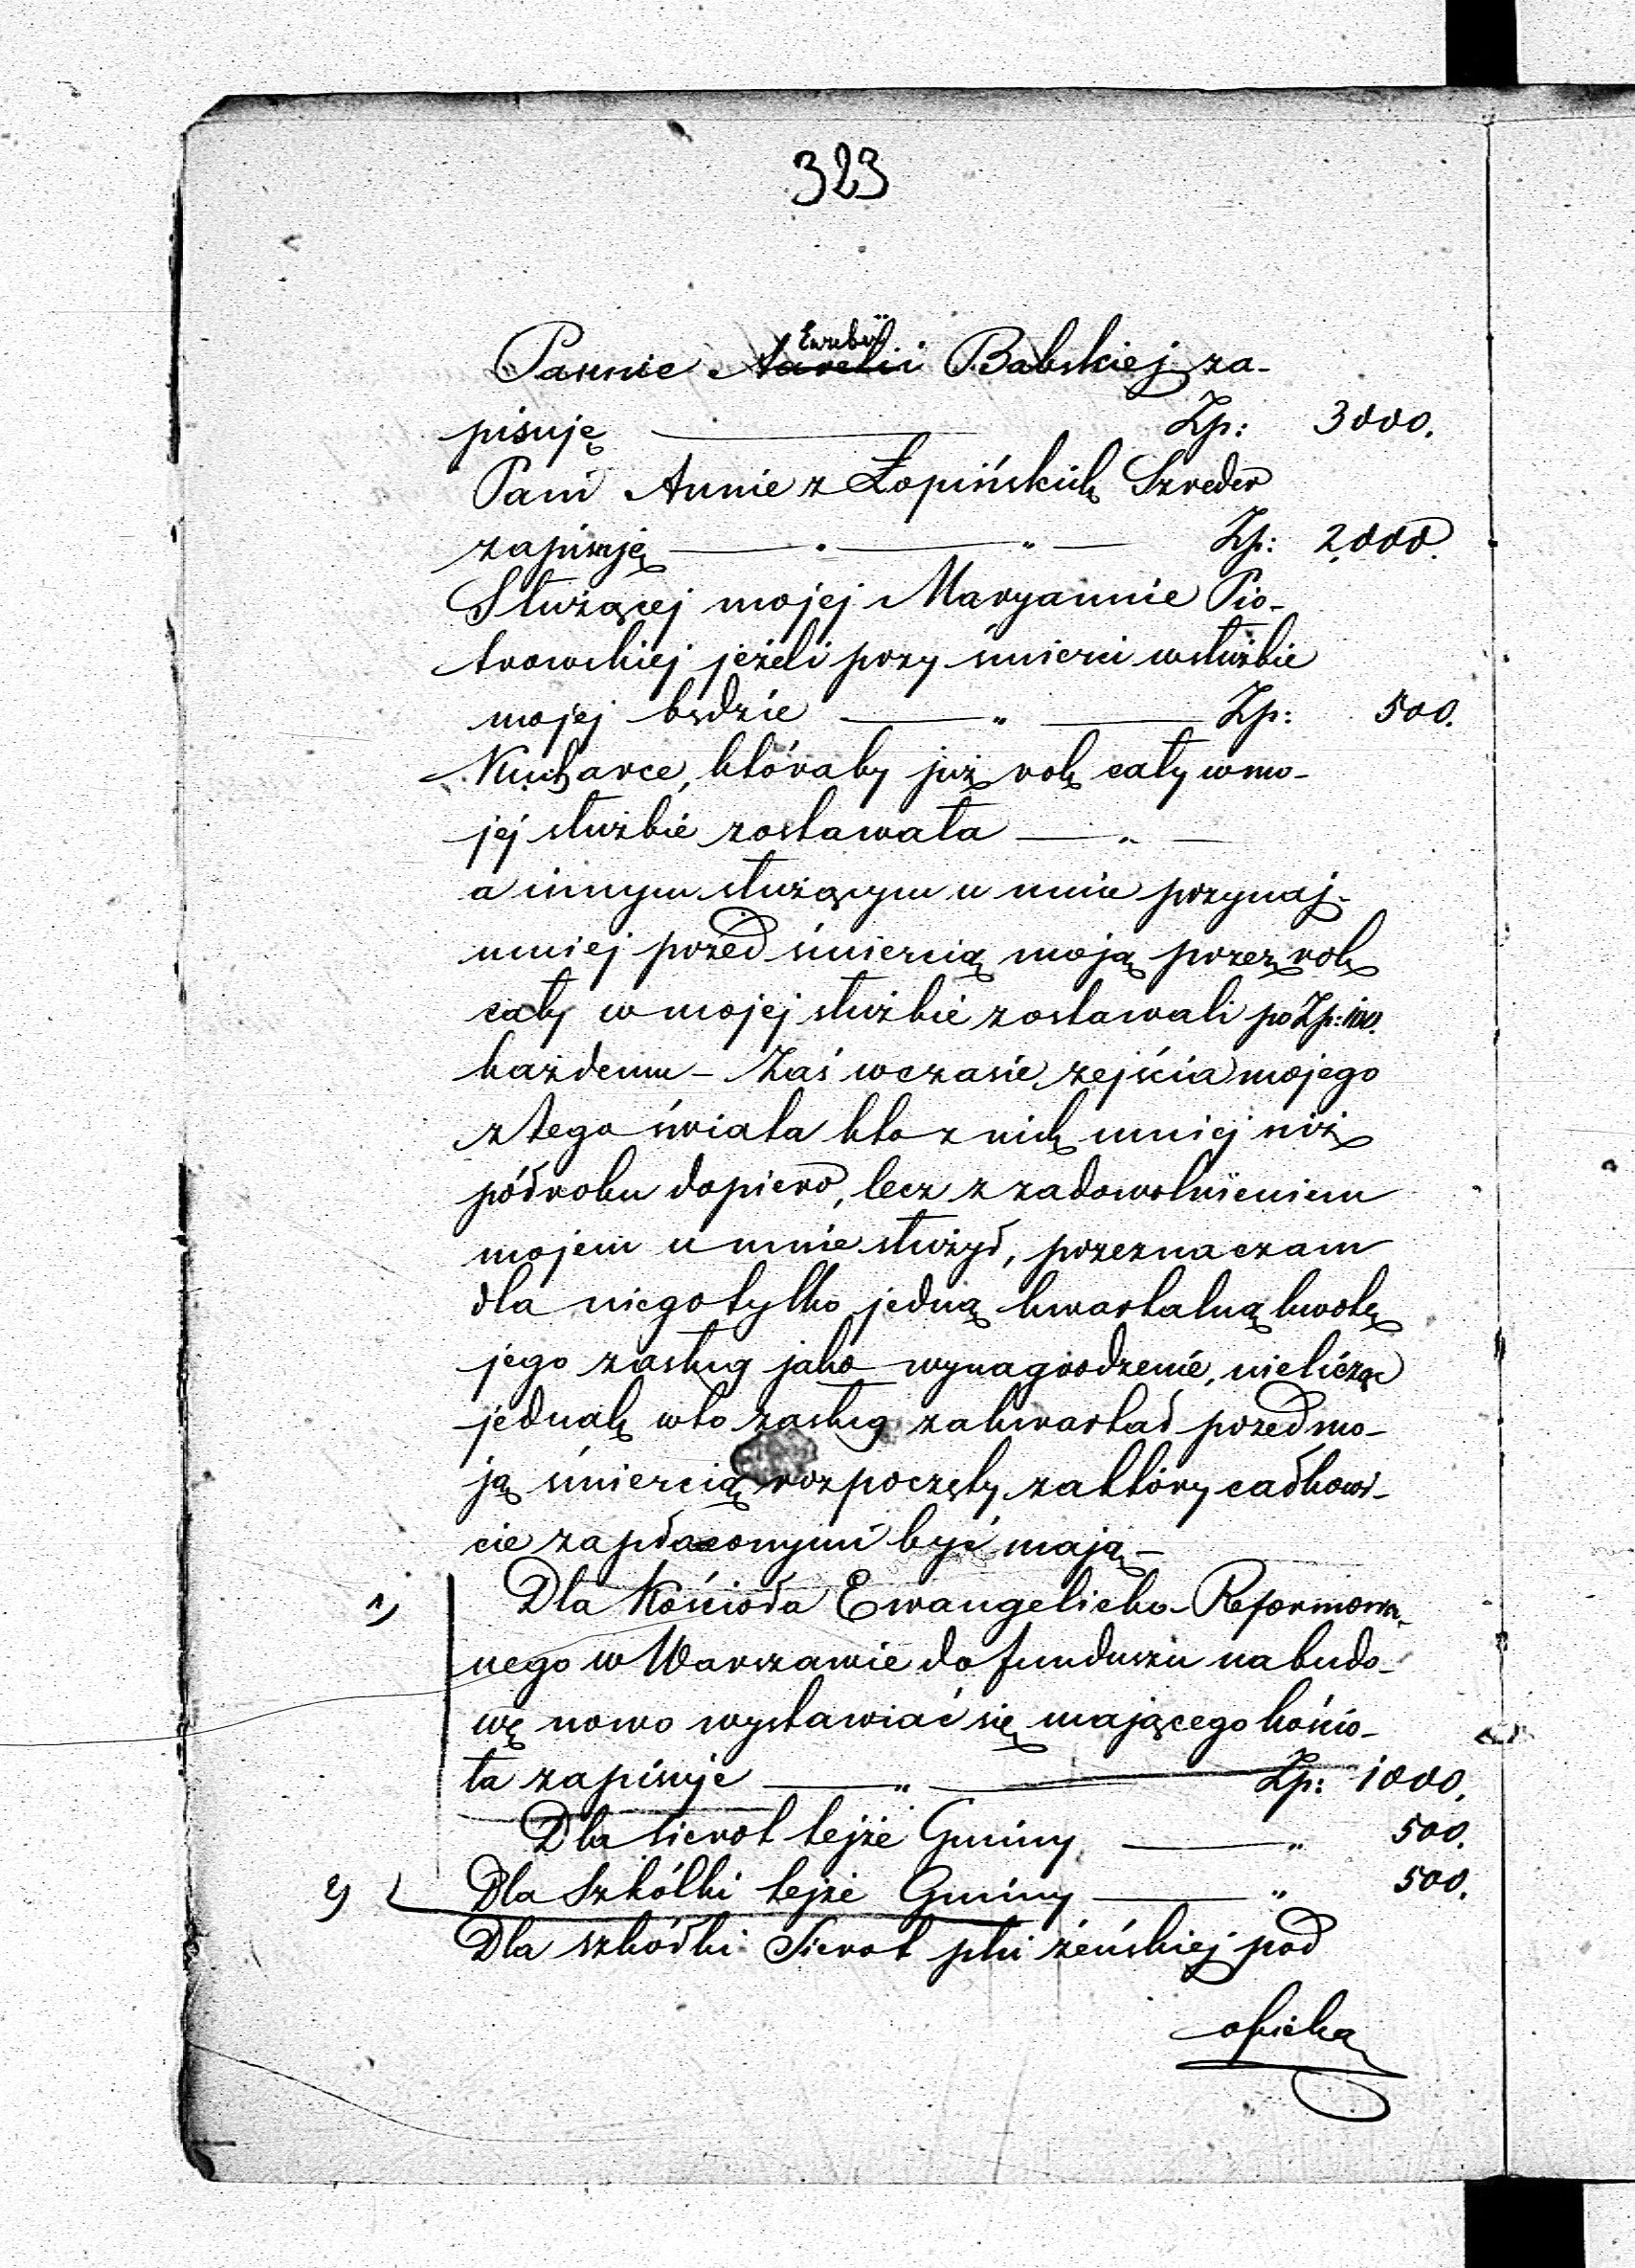 323
Pannie ~~Aurelii~~ Euzebii Babskiej za-
pisuję — Zp: 3000.
Pani Annie z Łopińskich Szreder
zapisuję — „ — „ — Zp: 2,000.
Służącej mojej Maryannie Pio-
trowskiej jeżeli przy śmierci w służbie
mojej będzie — „ — Zp: 500.
Kucharce, któraby już rok cały w mo-
jej służbie zostawała — „ —
a innym służącym u mnie przynaj-
mniej przed śmiercią moją przez rok
cały w mojej służbie zostawali po Zp: 100.
każdemu – Zaś w czasie zejścia mojego
z tego świata kto z nich mniej niż
pół roku dopiero, lecz z zadowolnieniem
mojem u mnie służył, przeznaczam
dla niego tylko jedną kwartalną kwotę
jego zasług jako wynagrodzenie, nielicząc
jednak w to zasług za kwartał przed mo-
ją śmiercią rozpoczęty, za który całkowi-
cie zapłaconymi być mają –
1) Dla Kościoła Ewangelicko-Reformowa-
nego w Warszawie do funduszu na budo-
wę nowo wystawiać się mającego kościo-
ła zapisuje — „ — Zp: 1000.
Dla sierot tejże Gminy — „ 500.
2) Dla Szkółki tejże Gminy — „ 500.
Dla szkółki Sierot płci żeńskiej pod
opieką